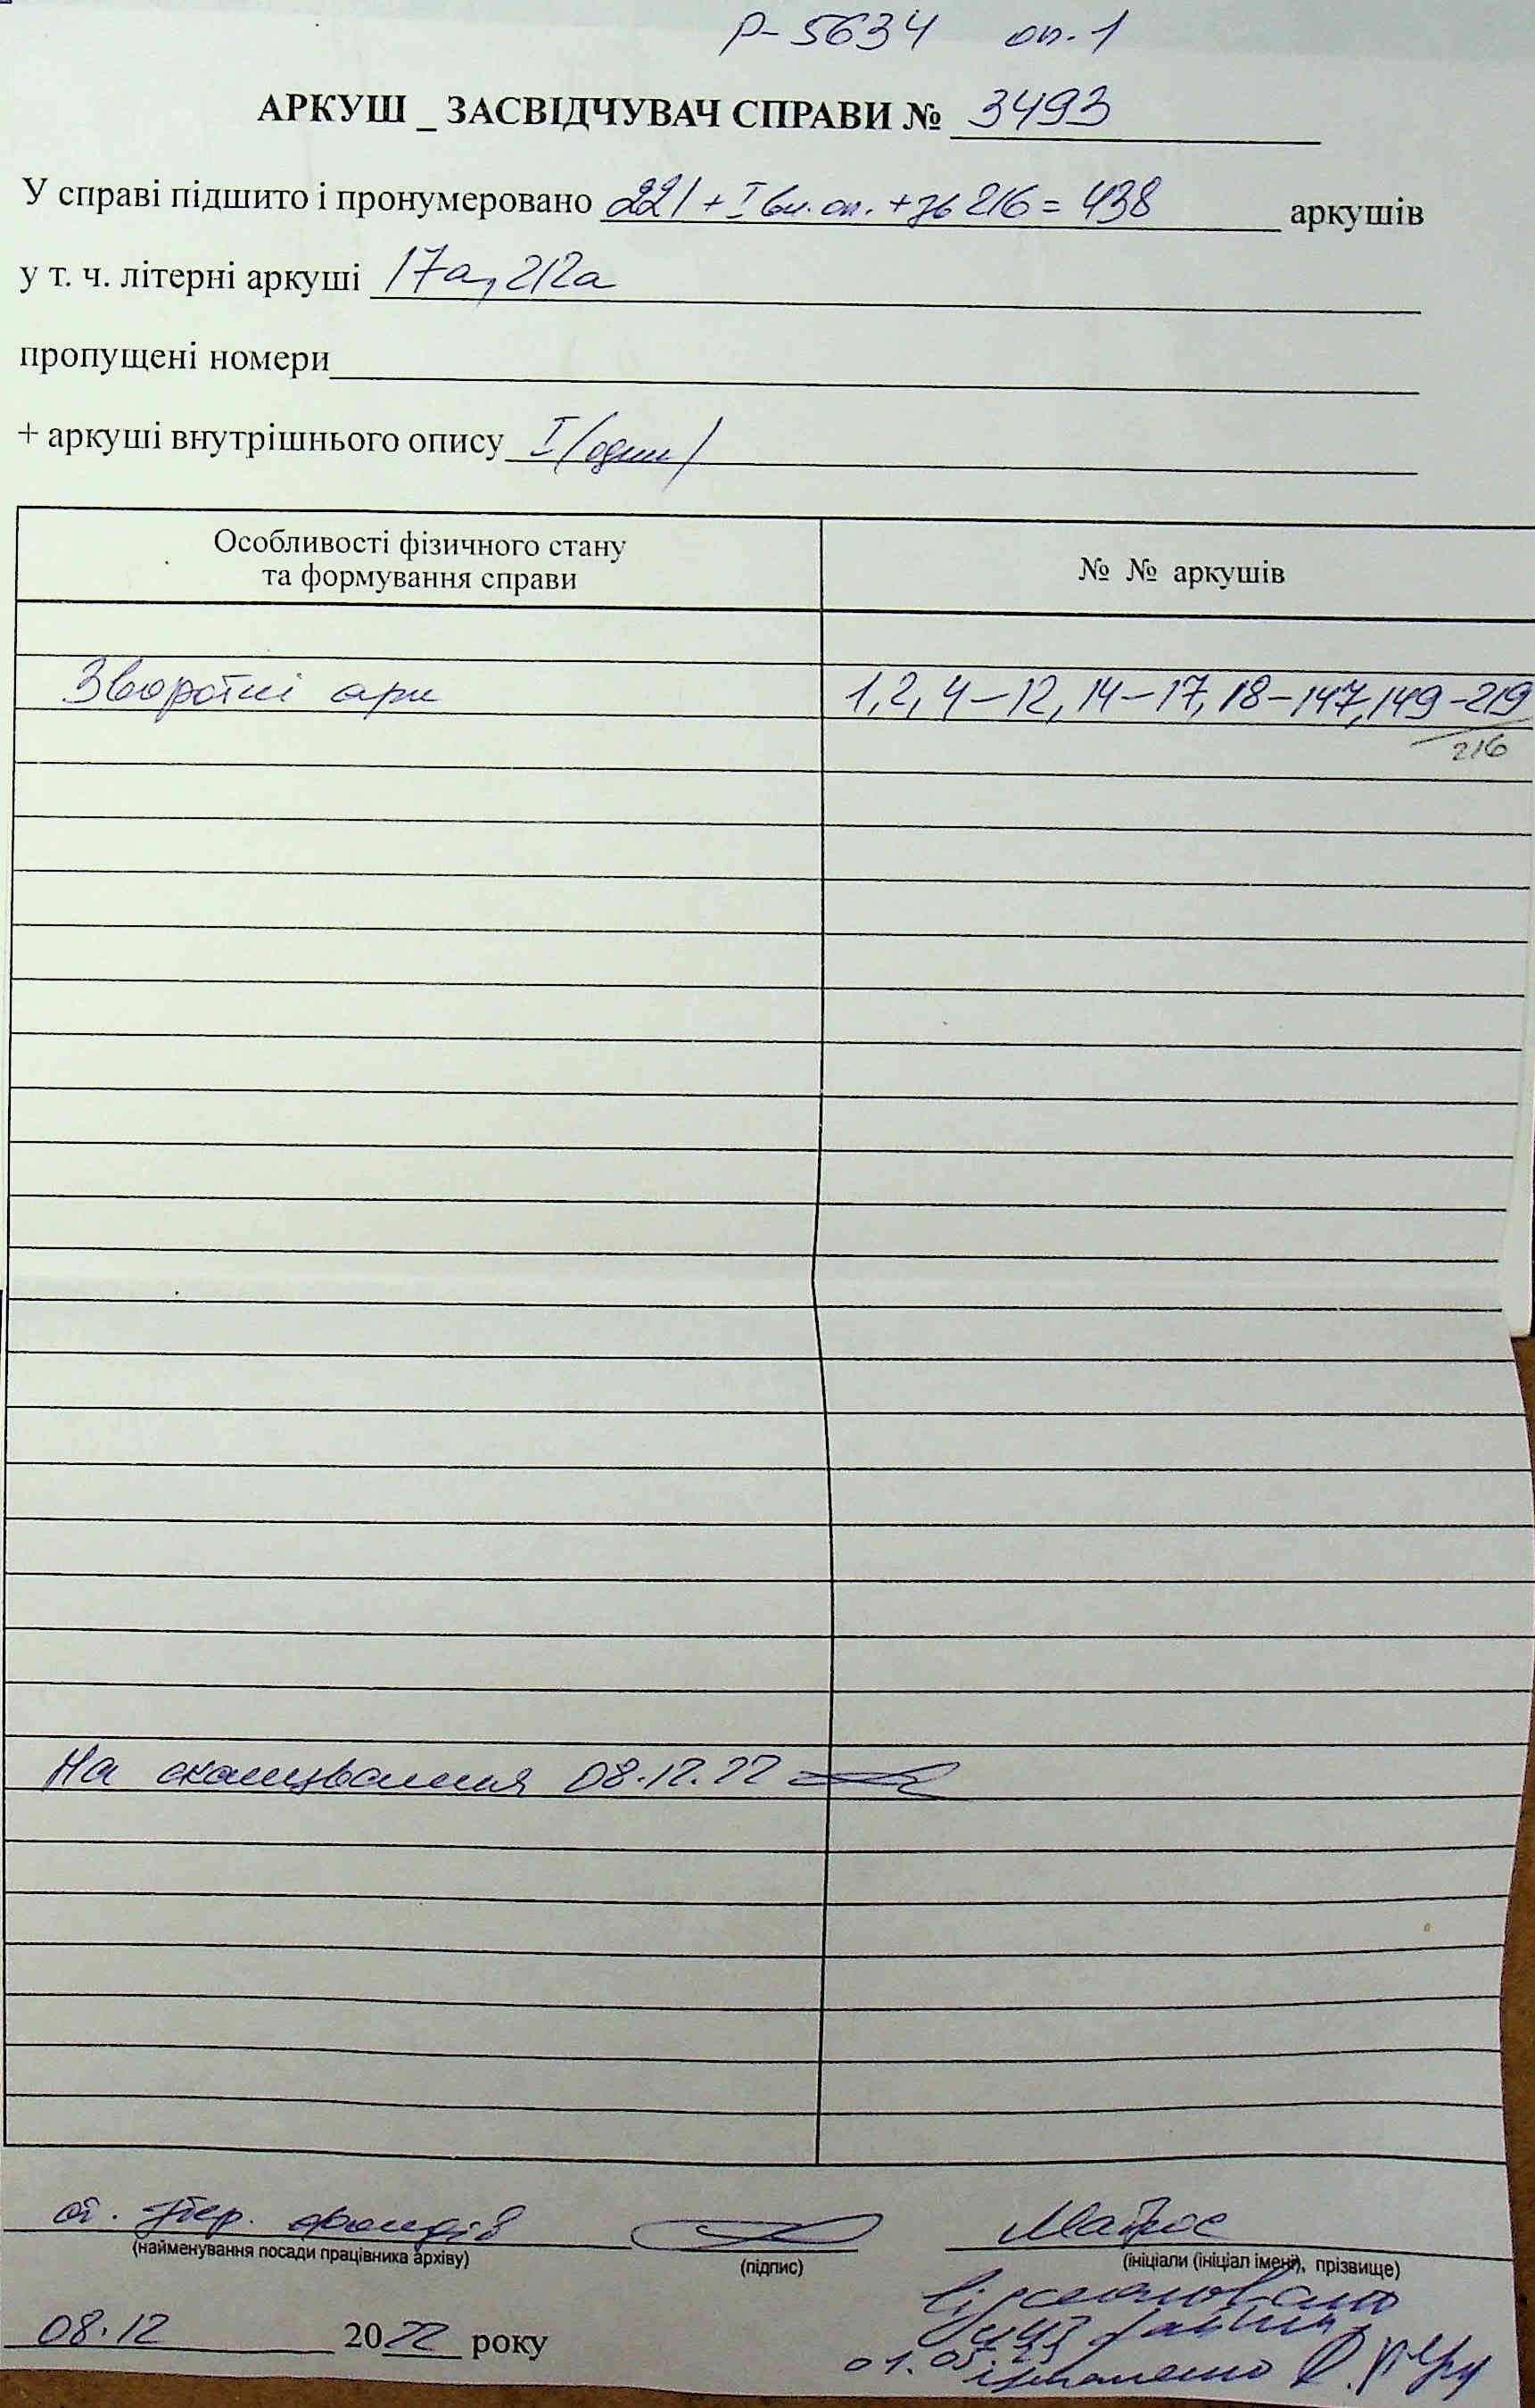 Р-5634 оп.1
АРКУШ _ ЗАСВІДЧУВАЧ СПРАВИ № 3493
У справі підшито і пронумеровано 221 + I вн. оп. + зв 216 = 438 аркушів
у т. ч. літерні аркуші 17а, 212а
пропущені номери
+ аркуші внутрішнього опису I (один)
Особливості фізичного стану
та формування справи
№ № аркушів
Зворотні арк 1, 2, 4–12, 14–17, 18–147, 149–219
216
На сканування 08.12.22
ст. хбер. фондів Матюс
(найменування посади працівника архіву) (підпис) (ініціали (ініціал імені), прізвище)
Відскановано
08.12 2022 року
443
01.03.